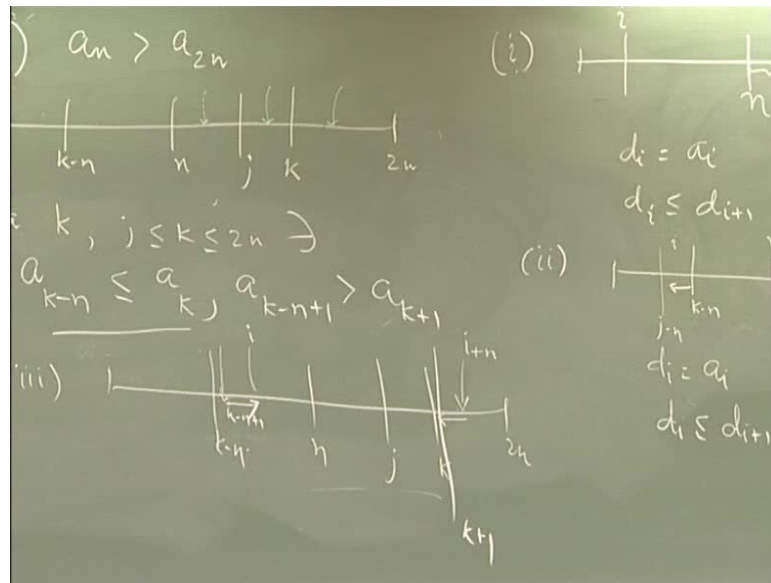 ) aₙ > a₂ₙ
k-n n j k 2n
k, j ≤ k ≤ 2n ∋
a_{k-n} ≤ a_k, a_{k-n+1} > a_{k+1}
iii) i i+n
k-n+1
k-n n j k 2n
k+1
(i) i
n
d_i = a_i
d_i ≤ d_{i+1}
(ii) i
k-n
j-n
d_i = a_i
d_i ≤ d_{i+1}